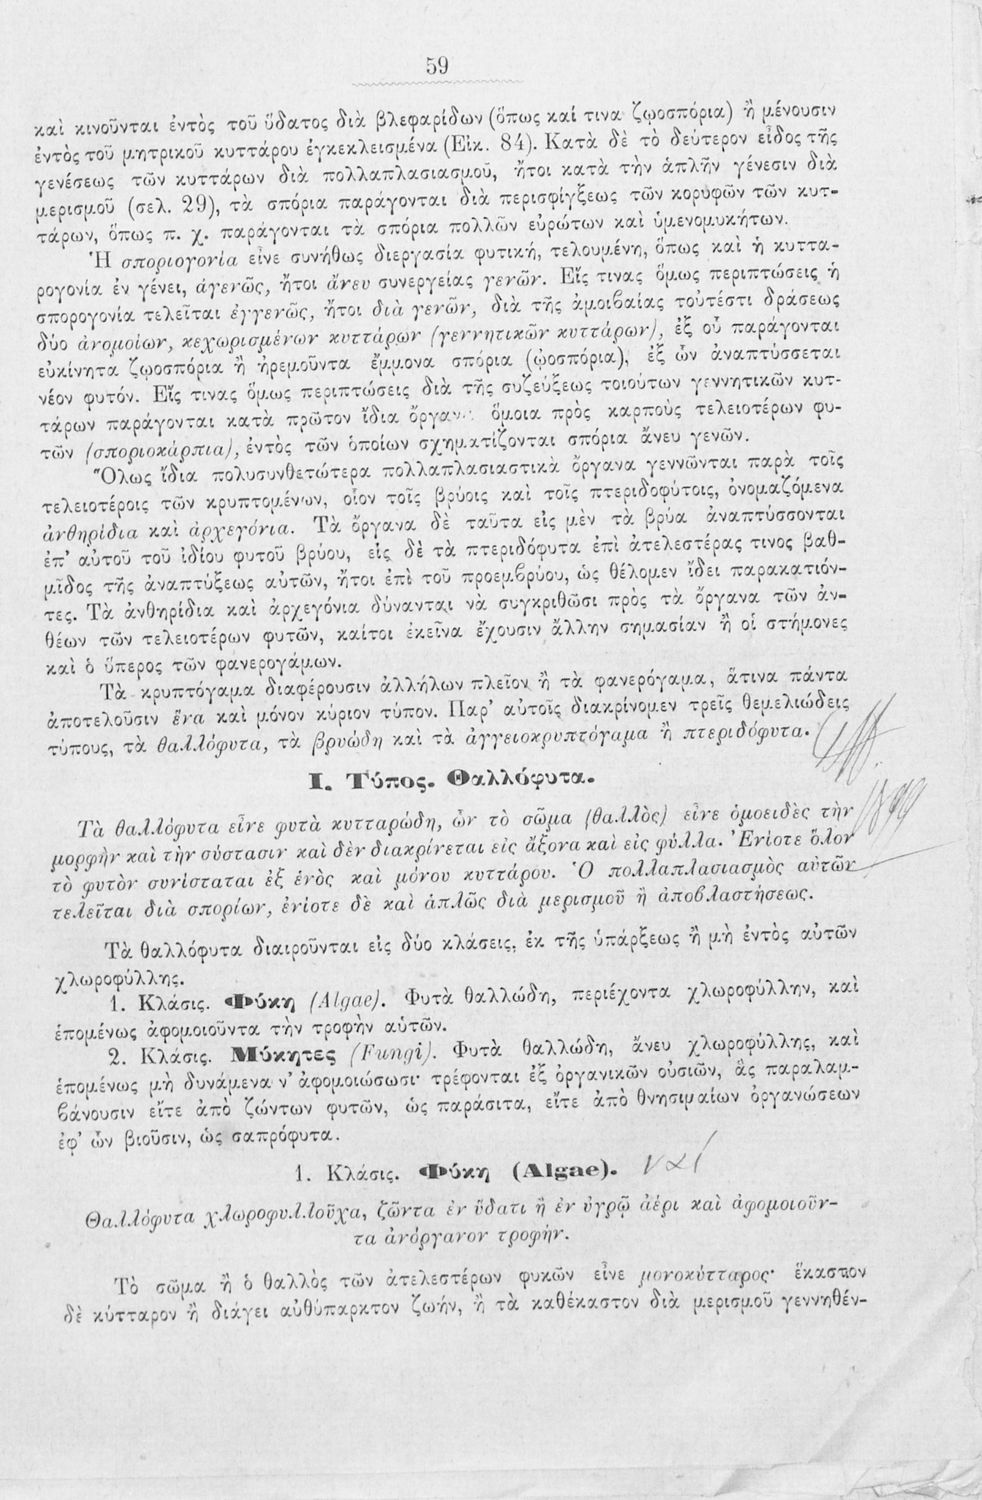 59
καὶ κινοῦνται ἐντὸς τοῦ ὕδατος διὰ βλεφαρίδων (ὅπως καί τινα ζῳοσπόρια) ἢ μένουσιν
ἐντὸς τοῦ μητρικοῦ κυττάρου ἐγκεκλεισμένα (Εἰκ. 84). Κατὰ δὲ τὸ δεύτερον εἶδος τῆς
γενέσεως τῶν κυττάρων διὰ πολλαπλασιασμοῦ, ἤτοι κατὰ τὴν ἁπλῆν γένεσιν διὰ
μερισμοῦ (σελ. 29), τὰ σπόρια παράγονται διὰ περισφίγξεως τῶν κορυφῶν τῶν κυτ-
τάρων, ὅπως π. χ. παράγονται τὰ σπόρια πολλῶν εὐρώτων καὶ ὑμενομυκήτων.
Ἡ σποριογονία εἶνε συνήθως διεργασία φυτική, τελουμένη, ὅπως καὶ ἡ κυττα-
ρογονία ἐν γένει, ἀγενῶς, ἤτοι ἄνευ συνεργείας γενῶν. Εἴς τινας ὅμως περιπτώσεις ἡ
σπορογονία τελεῖται ἐγγενῶς, ἤτοι διὰ γενῶν, διὰ τῆς ἀμοιβαίας τοὐτέστι δράσεως
δύο ἀνομοίων, κεχωρισμένων κυττάρων (γεννητικῶν κυττάρων), ἐξ οὗ παράγονται
εὐκίνητα ζῳοσπόρια ἢ ἠρεμοῦντα ἔμμονα σπόρια (ᾠοσπόρια), ἐξ ὧν ἀναπτύσσεται
νέον φυτόν. Εἴς τινας ὅμως περιπτώσεις διὰ τῆς συζεύξεως τοιούτων γεννητικῶν κυτ-
τάρων παράγονται κατὰ πρῶτον ἴδια ὄργανα ὅμοια πρὸς καρποὺς τελειοτέρων φυ-
τῶν (σποριοκάρπια), ἐντὸς τῶν ὁποίων σχηματίζονται σπόρια ἄνευ γενῶν.
Ὅλως ἴδια πολυσυνθετώτερα πολλαπλασιαστικὰ ὄργανα γεννῶνται παρὰ τοῖς
τελειοτέροις τῶν κρυπτομένων, οἷον τοῖς βρύοις καὶ τοῖς πτεριδοφύτοις, ὀνομαζόμενα
ἀνθηρίδια καὶ ἀρχεγόνια. Τὰ ὄργανα δὲ ταῦτα εἰς μὲν τὰ βρύα ἀναπτύσσονται
ἐπ' αὐτοῦ τοῦ ἰδίου φυτοῦ βρύου, εἰς δὲ τὰ πτεριδόφυτα ἐπὶ ἀτελεστέρας τινος βαθ-
μῖδος τῆς ἀναπτύξεως αὐτῶν, ἤτοι ἐπὶ τοῦ προεμβρύου, ὡς θέλομεν ἴδει παρακατιόν-
τες. Τὰ ἀνθηρίδια καὶ ἀρχεγόνια δύνανται νὰ συγκριθῶσι πρὸς τὰ ὄργανα τῶν ἀν-
θέων τῶν τελειοτέρων φυτῶν, καίτοι ἐκεῖνα ἔχουσιν ἄλλην σημασίαν ἢ οἱ στήμονες
καὶ ὁ ὕπερος τῶν φανερογάμων.
Τὰ κρυπτόγαμα διαφέρουσιν ἀλλήλων πλεῖον ἢ τὰ φανερόγαμα, ἅτινα πάντα
ἀποτελοῦσιν ἕνα καὶ μόνον κύριον τύπον. Παρ' αὐτοῖς διακρίνομεν τρεῖς θεμελιώδεις
τύπους, τὰ θαλλόφυτα, τὰ βρυώδη καὶ τὰ ἀγγειοκρυπτόγαμα ἢ πτεριδόφυτα.
Ι. Τύπος. Θαλλόφυτα.
1899
Τὰ θαλλόφυτα εἶνε φυτὰ κυτταρώδη, ὧν τὸ σῶμα (θαλλὸς) εἶνε ὁμοειδὲς τὴν
μορφὴν καὶ τὴν σύστασιν καὶ δὲν διακρίνεται εἰς ἄξονα καὶ εἰς φύλλα. Ἐνίοτε ὅλον
τὸ φυτὸν συνίσταται ἐξ ἑνὸς καὶ μόνου κυττάρου. Ὁ πολλαπλασιασμὸς αὐτῶν
τελεῖται διὰ σπορίων, ἐνίοτε δὲ καὶ ἁπλῶς διὰ μερισμοῦ ἢ ἀποβλαστήσεως.
Τὰ θαλλόφυτα διαιροῦνται εἰς δύο κλάσεις, ἐκ τῆς ὑπάρξεως ἢ μὴ ἐντὸς αὐτῶν
χλωροφύλλης.
1. Κλάσις. Φύκη (Algae). Φυτὰ θαλλώδη, περιέχοντα χλωροφύλλην, καὶ
ἑπομένως ἀφομοιοῦντα τὴν τροφὴν αὑτῶν.
2. Κλάσις. Μύκητες (Fungi). Φυτὰ θαλλώδη, ἄνευ χλωροφύλλης, καὶ
ἑπομένως μὴ δυνάμενα ν' ἀφομοιώσωσι· τρέφονται ἐξ ὀργανικῶν οὐσιῶν, ἃς παραλαμ-
βάνουσιν εἴτε ἀπὸ ζώντων φυτῶν, ὡς παράσιτα, εἴτε ἀπὸ θνησιμαίων ὀργανώσεων
ἐφ' ὧν βιοῦσιν, ὡς σαπρόφυτα.
1. Κλάσις. Φύκη (Algae). ναί
Θαλλόφυτα χλωροφυλλοῦχα, ζῶντα ἐν ὕδατι ἢ ἐν ὑγρῷ ἀέρι καὶ ἀφομοιοῦν-
τα ἀνόργανον τροφήν.
Τὸ σῶμα ἢ ὁ θαλλὸς τῶν ἀτελεστέρων φυκῶν εἶνε μονοκύτταρος· ἕκαστον
δὲ κύτταρον ἢ διάγει αὐθύπαρκτον ζωήν, ἢ τὰ καθέκαστον διὰ μερισμοῦ γεννηθέν-